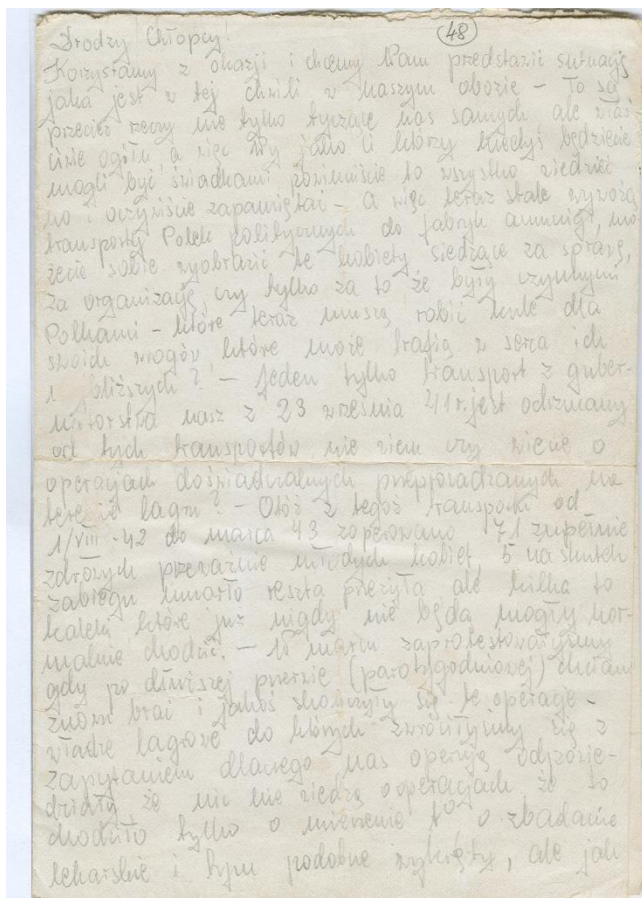 48
Drodzy Chłopcy!
Korzystamy z okazji i chcemy Wam przedstawić sytuację
jaka jest w tej chwili w naszym obozie – To są
przecież rzeczy nie tylko tyczące nas samych ale właś-
ciwie ogółu, a więc Wy jako ci którzy kiedyś będziecie
mogli być świadkami powinniście to wszystko wiedzieć
no i oczywiście zapamiętać – A więc teraz stale wywożą
transporty Polek politycznych do fabryk amunicji, mo-
żecie sobie wyobrazić te kobiety siedzące za sprawę,
za organizację, czy tylko za to że były czynnymi
Polkami – które teraz muszą robić kule dla
swoich wrogów które może trafią w serca ich
bliższych? – Jeden tylko transport z guber-
natorstwa nasz z 23 września 41 r. jest odrzucany
od tych transportów nie wiem czy wiecie o
operacjach doświadczalnych przeprowadzanych na
terenie lagru? – Otóż z tegoż transportu od
1/VIII-42 do marca 43 zoperowano 71 zupełnie
zdrowych przeważnie młodych kobiet, 5 na skutek
zabiegu umarło reszta przeżyła ale kilka to
kaleki które już nigdy nie będą mogły nor-
malnie chodzić. – W marcu zaprotestowałyśmy
gdy po dłuższej przerwie (parotygodniowej) chciano
znowu brać i jakoś skończyły się te operacje –
władze lagrowe do których zwróciłyśmy się z
zapytaniem dlaczego nas operują odpowie-
działy że nic nie wiedzą o operacjach że to
chodziło tylko o mierzenie t° o zbadanie
lekarskie i typu podobne wykręty, ale jak